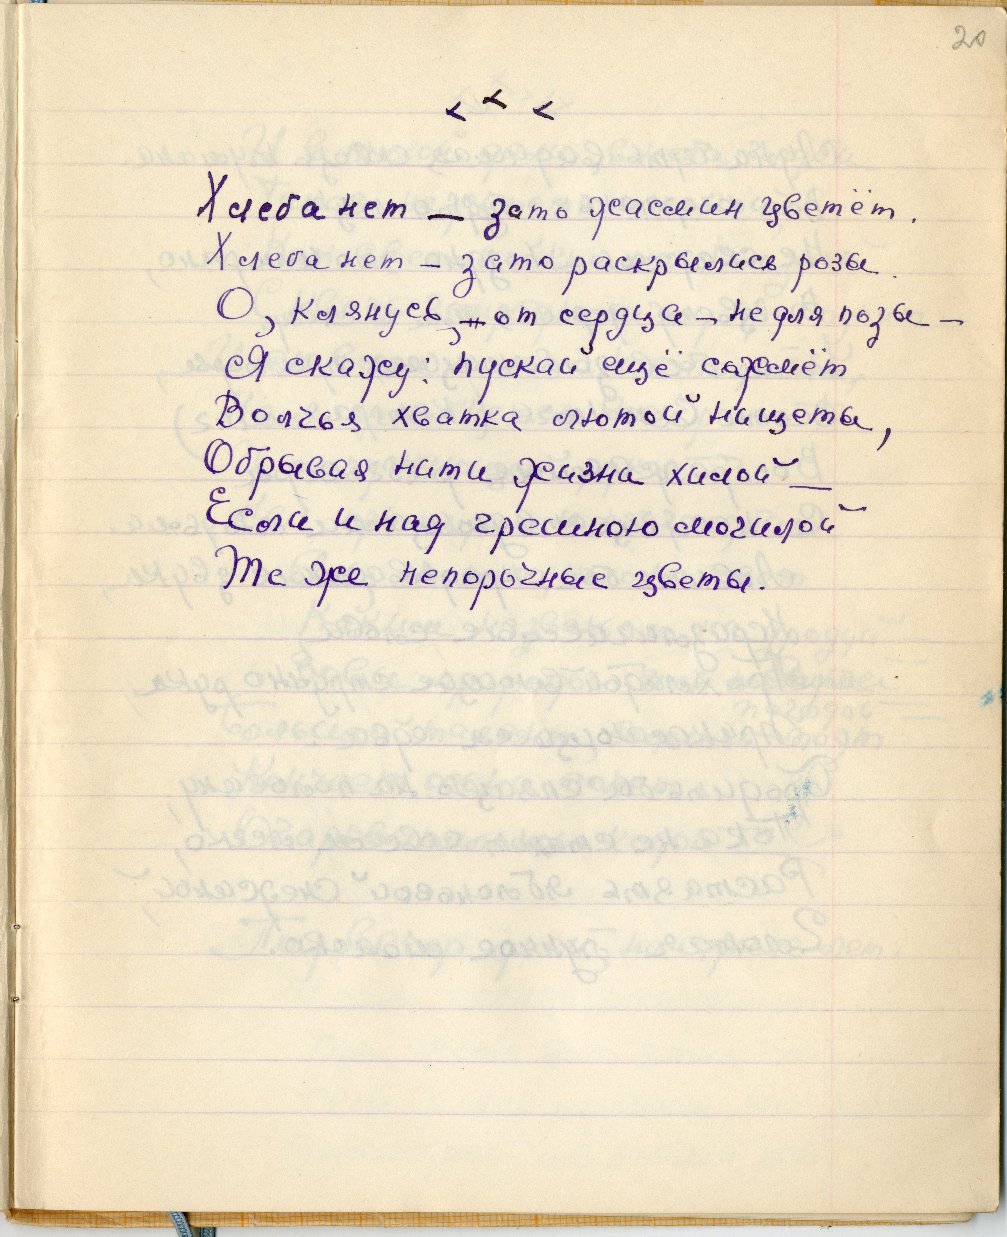 20
Хлеба нет — зато жасмин цветёт.
Хлеба нет — зато раскрылись розы.
О, клянусь, — от сердца — не для позы —
Я скажу: пускай ещё сожмёт
Волчья хватка лютой нищеты,
Обрывая нити жизни хилой —
Если и над грешною могилой
Те же непорочные цветы.